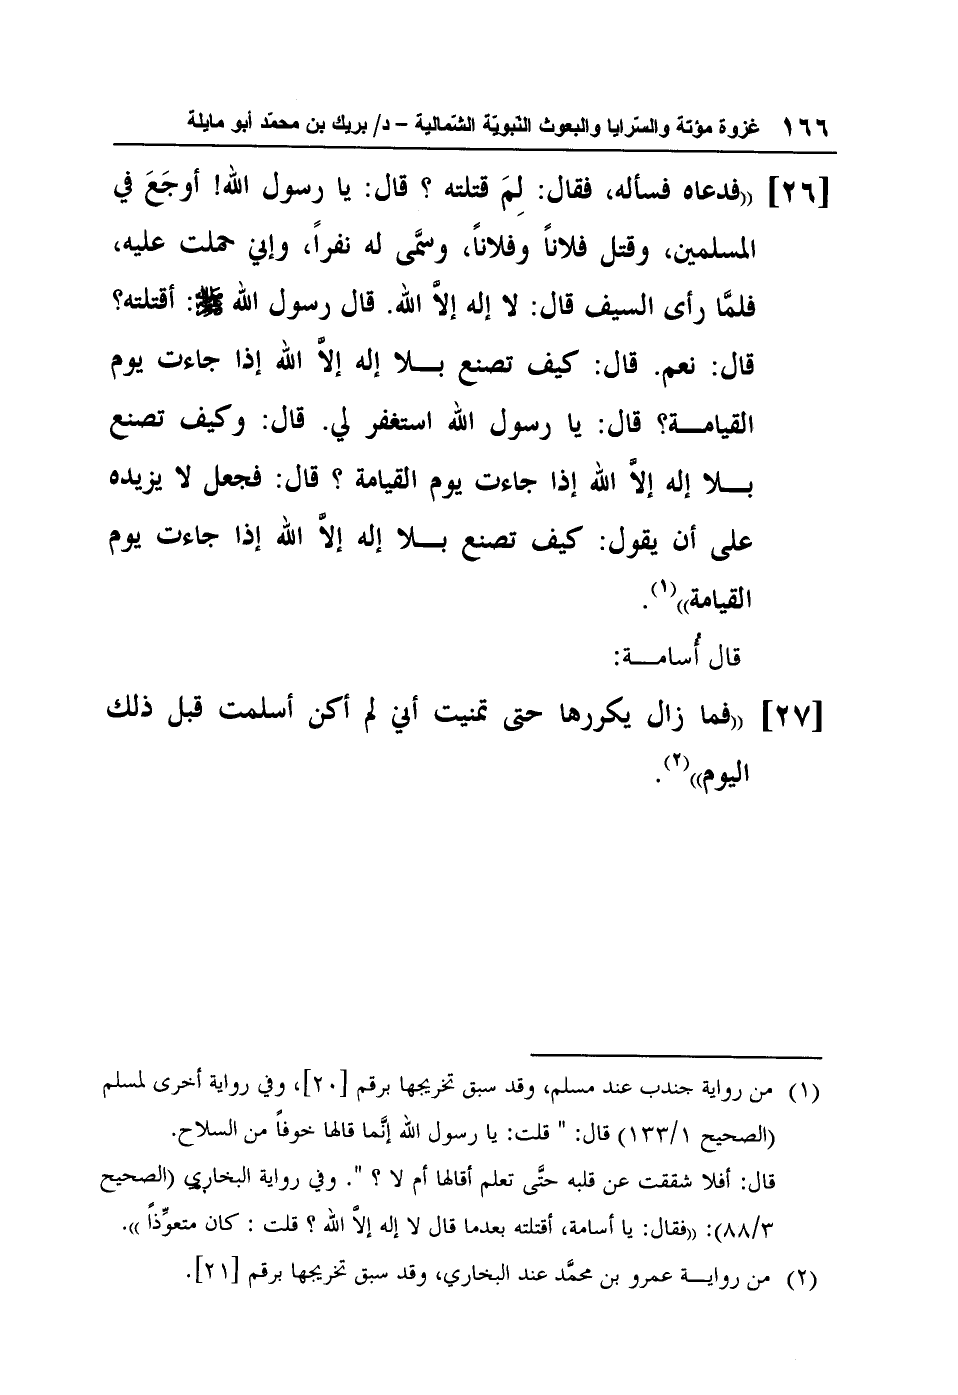 ١٦٦ غزوة مؤتة والسّرايا والبعوث النّبويّة الشّمالية – د/ بريك بن محمّد أبو مايلة
[٢٦] ((فدعاه فسأله، فقال: لِمَ قتلته ؟ قال: يا رسول الله! أوجَعَ في
المسلمين، وقتل فلاناً وفلاناً، وسمَّى له نفراً، وإني حملت عليه،
فلمَّا رأى السيف قال: لا إله إلاَّ الله. قال رسول الله ﷺ: أقتلته؟
قال: نعم. قال: كيف تصنع بـــلا إله إلاَّ الله إذا جاءت يوم
القيامـــة؟ قال: يا رسول الله استغفر لي. قال: وكيف تصنع
بـــلا إله إلاَّ الله إذا جاءت يوم القيامة ؟ قال: فجعل لا يزيده
على أن يقول: كيف تصنع بـــلا إله إلاَّ الله إذا جاءت يوم
القيامة))(١).
قال أُسامـــة:
[٢٧] ((فما زال يكررها حتى تمنيت أني لم أكن أسلمت قبل ذلك
اليوم))(٢).
(١) من رواية جندب عند مسلم، وقد سبق تخريجها برقم [٢٠]، وفي رواية أخرى لمسلم
(الصحيح ١٣٣/١) قال: " قلت: يا رسول الله إنَّما قالها خوفاً من السلاح.
قال: أفلا شققت عن قلبه حتَّى تعلم أقالها أم لا ؟ ". وفي رواية البخاري (الصحيح
٨٨/٣): ((فقال: يا أسامة، أقتلته بعدما قال لا إله إلاَّ الله ؟ قلت : كان متعوِّذاً )).
(٢) من روايـــة عمرو بن محمَّد عند البخاري، وقد سبق تخريجها برقم [٢١].